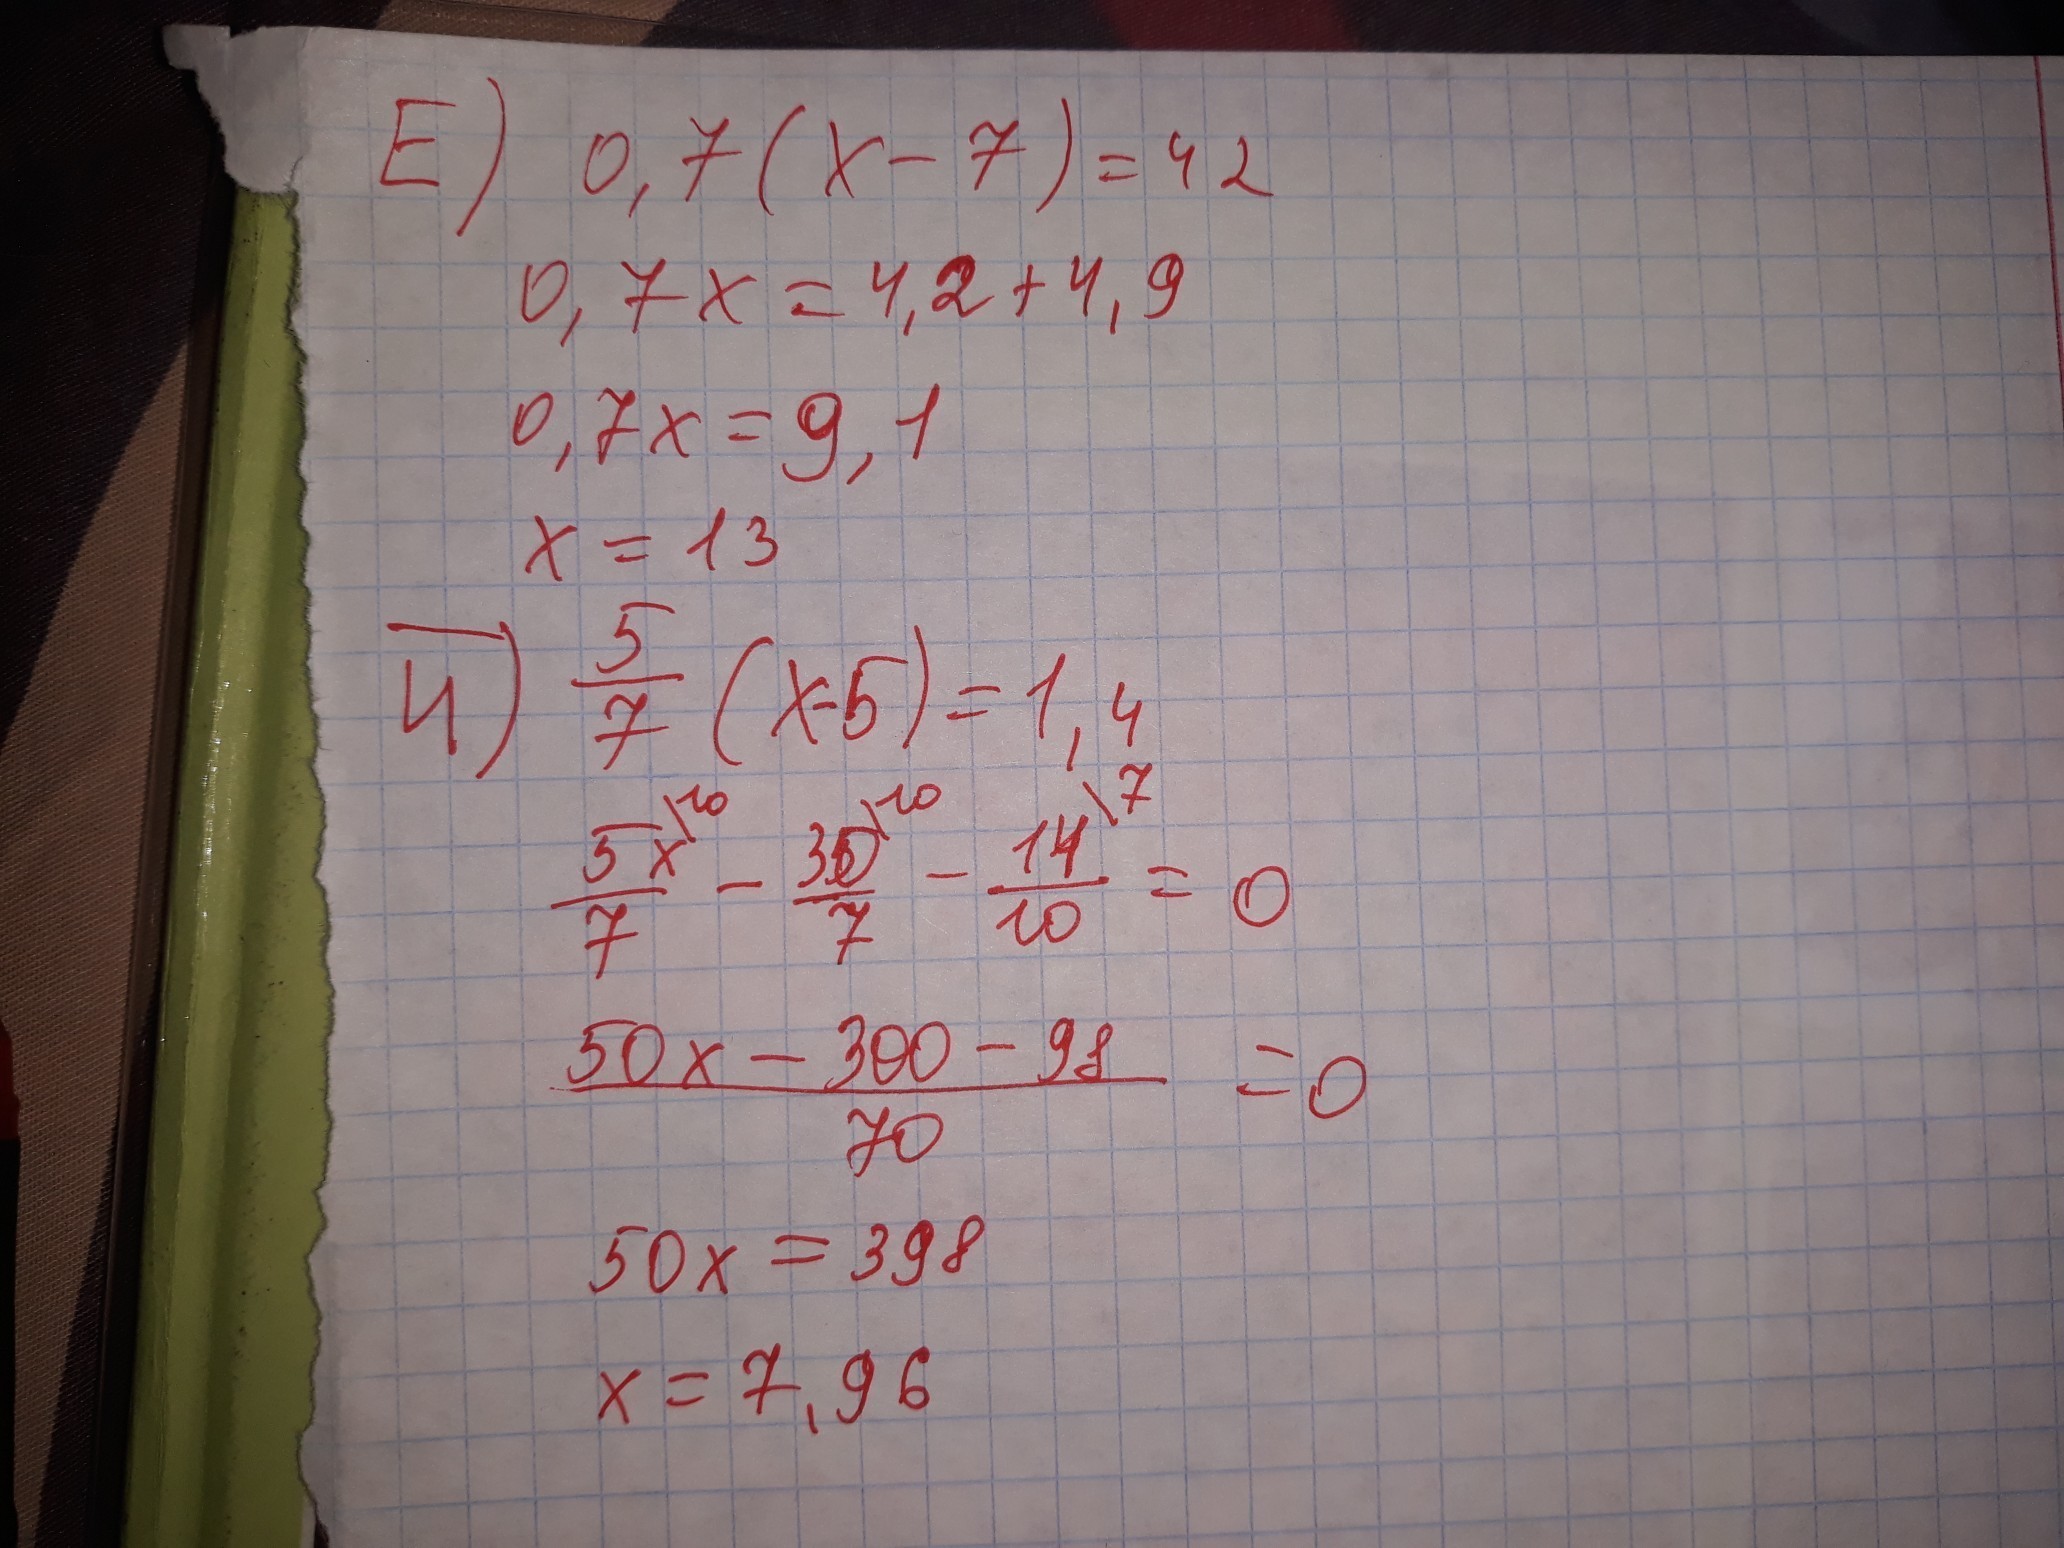 E) 0,7(x-7)=42
0,7x=4,2+4,9
0,7x=9,1
x=13
Ч) 5/7 (x-5)=1,4
5x\10/7 - 30\10/7 - 14\7/10 = 0
50x-300-98/70 =0
50x=398
x=7,96